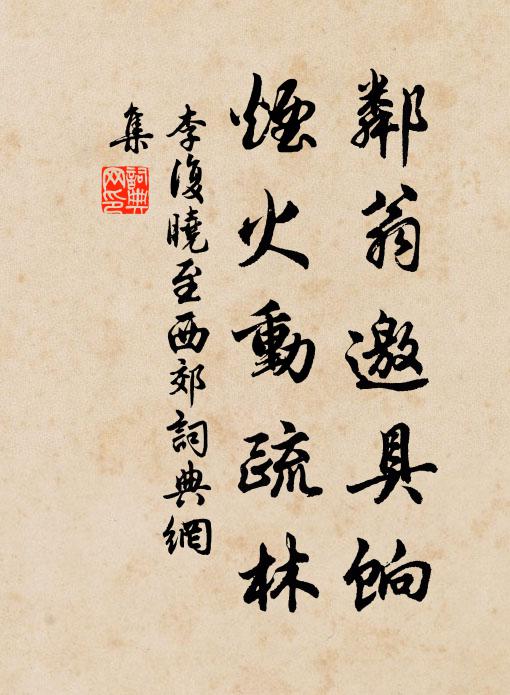 鄰翁邀具餉
煙火動疏林
李復曉至西郊詞典網
集
詞典
网印